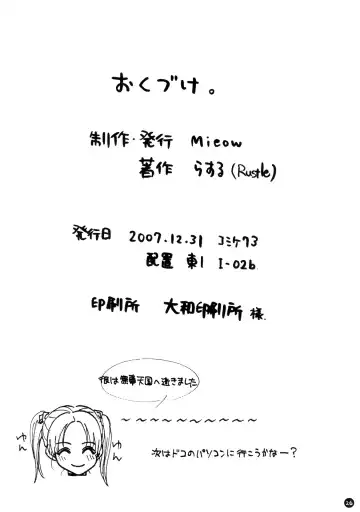 おくづけ。
制作・発行 Mieow
著作 らする(Rustle)
発行日 2007.12.31 コミケ73
配置 東1 I-02b
印刷所 大和印刷所 様
根は無事天国へ逝きました
ゆん
ゆん
~~~~~~~~~~
次はドコのパソコンに行こうかなー?
26